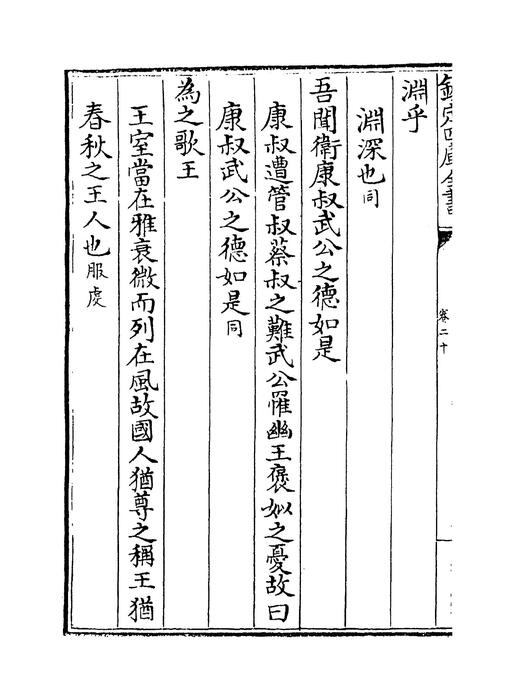 欽定四庫全書
卷二十
淵乎
淵深也同
吾聞衛康叔武公之德如是
康叔遭管叔蔡叔之難武公罹幽王褒姒之憂故曰
康叔武公之德如是同
為之歌王
王室當在雅衰微而列在風故國人猶尊之稱王猶
春秋之王人也服虔